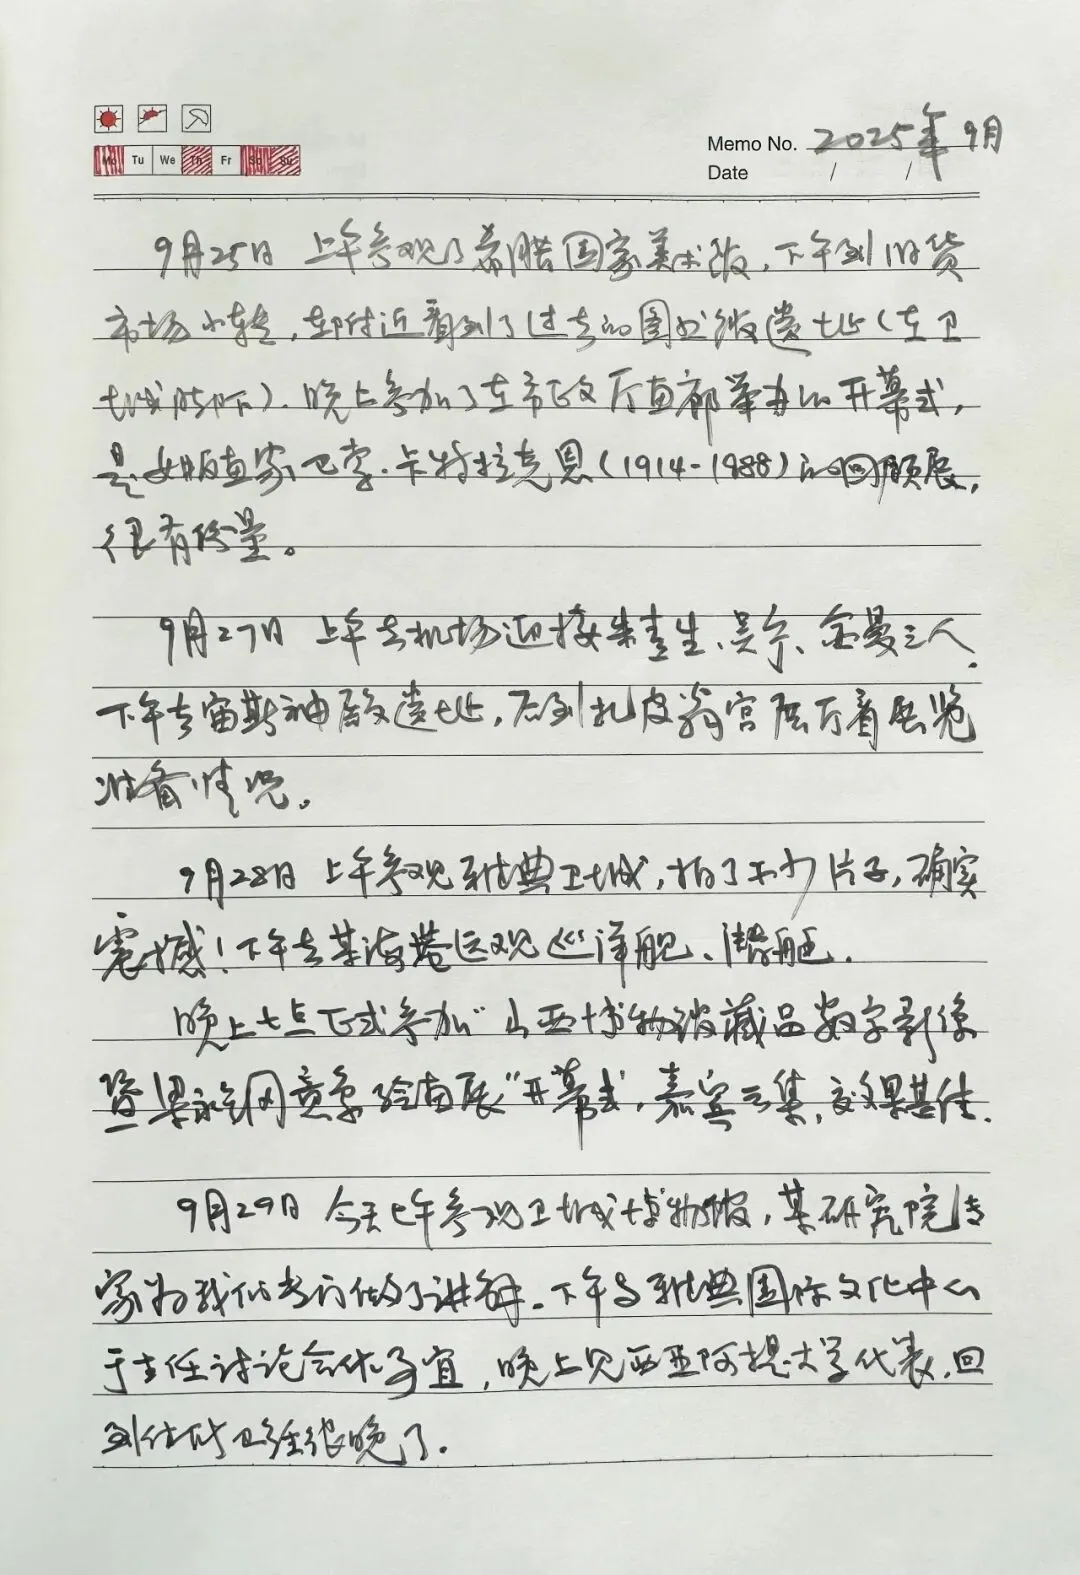 Mo Tu We Th Fr Sa Su
Memo No. 2025年9月
Date / /
9月25日 上午参观了希腊国家美术馆,下午到旧货
市场小转,在附近看到了过去的图书馆遗址(在卫
城脚下)。晚上参加了在市政厅直部举办的开幕式,
是女版画家卫索·卡特拉克恩(1914-1988)的回顾展,
很有份量。
9月27日 上午去机场迎接朱直生、吴宁、金曼三人,
下午去宙斯神殿遗址,后到扎皮翁宫展厅看展览
准备情况。
9月28日 上午参观雅典卫城,拍了不少片子,确实
震撼!下午去某海港区观巡洋舰、潜艇.
晚上七点正式参加“山西博物馆藏品数字影像
暨梁永钢意象绘画展”开幕式,嘉宾云集,效果甚佳.
9月29日 今天上午参观卫城博物馆,某研究院专
家为我们专门做了讲解。下午与雅典国际文化中心
于主任讨论合作事宜,晚上见西亚阿提大学代表,回
到住所已经很晚了.